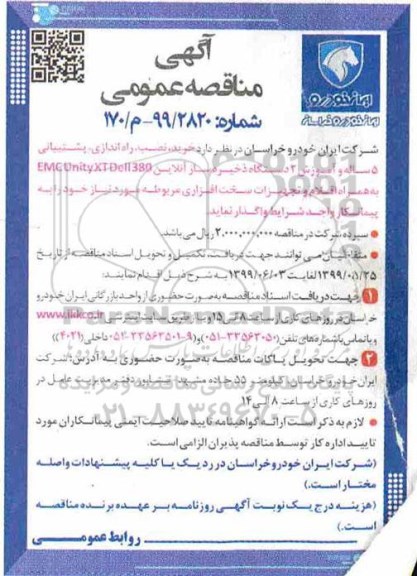 آگهی
مناقصه عمومی
شماره: ۹۹/۲۸۲۰-م/۱۷۰
ایران خودرو
ایران خودرو خراسان
شرکت ایران خودرو خراسان در نظر دارد خرید، نصب، راه اندازی، پشتیبانی
۵ ساله و آموزش ۲ دستگاه ذخیره ساز آنلاین EMCUnityXTDell380
به همراه اقلام و تجهیزات سخت افزاری مربوطه مورد نیاز خود را به
پیمانکار واجد شرایط واگذار نماید.
• سپرده شرکت در مناقصه ۲,۰۰۰,۰۰۰,۰۰۰ ریال می باشد.
• متقاضیان می توانند جهت دریافت، تکمیل و تحویل اسناد مناقصه از تاریخ
لغایت ۱۳۹۹/۰۶/۰۳ به شرح ذیل اقدام نمایند:
۱ جهت دریافت اسناد مناقصه به صورت حضوری از واحد بازرگانی ایران خودرو
خراسان در روزهای کاری از ساعت ۸ الی ۱۵ و یا www.ikkco.ir
و یا تماس با شماره های تلفن: داخلی (۴۰۲۱)
۲ جهت تحویل پاکات مناقصه به صورت حضوری به آدرس: شرکت
ایران خودرو خراسان، کیلومتر ۵۵ جاده دفتر مدیریت عامل در
روزهای کاری از ساعت ۸ الی ۱۴
۰۲۱-۸۸۳۴۹۶۷۰-۵
ParsNamadData
• لازم به ذکر است ارائه گواهینامه تایید صلاحیت ایمنی پیمانکاران مورد
تایید اداره کار توسط مناقصه پذیران الزامی است.
(شرکت ایران خودرو خراسان در رد یک یا کلیه پیشنهادات واصله
مختار است.)
(هزینه درج یک نوبت آگهی روزنامه بر عهده برنده مناقصه
است.)
روابط عمومی